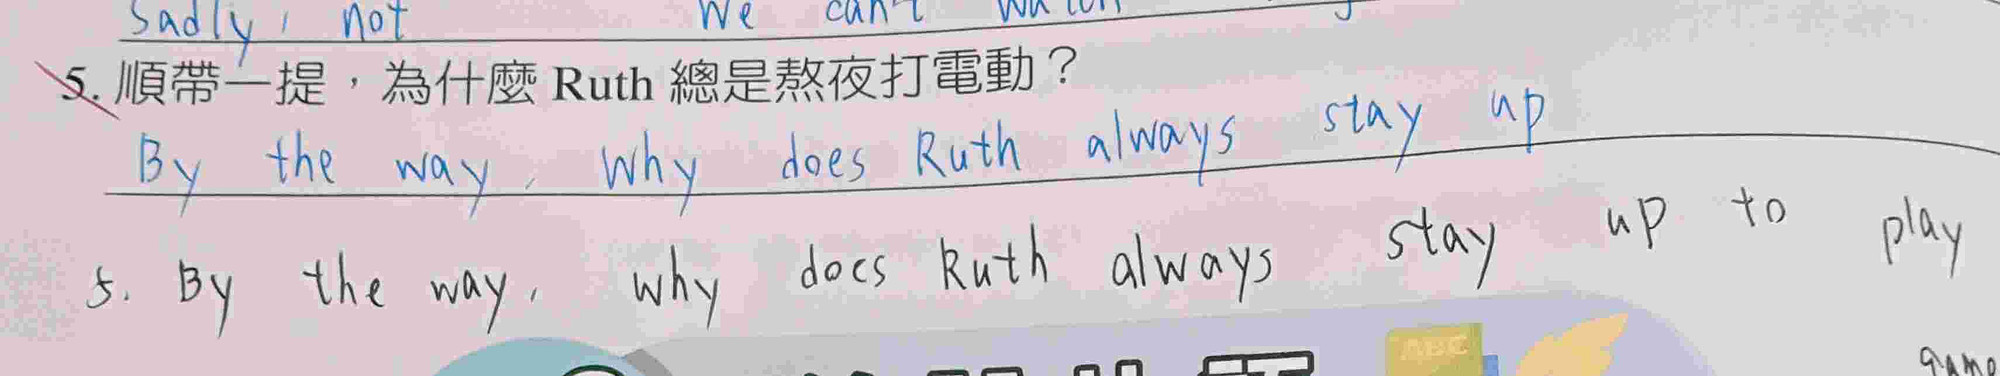 Sadly, not We can't watch
5. 順帶一提，為什麼 Ruth 總是熬夜打電動？
By the way, why does Ruth always stay up
5. By the way, why does Ruth always stay up to play
game
ABC